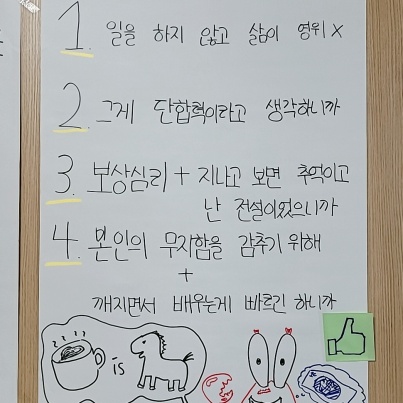 1. 일을 하지 않고 삶이 영위 X
2. 그게 단합력이라고 생각하니까
3. 보상심리 + 지나고 보면 추억이고
난 전설이었으니까
4. 본인의 무지함을 감추기 위해
+
깨지면서 배우는게 빠르긴 하니까
is